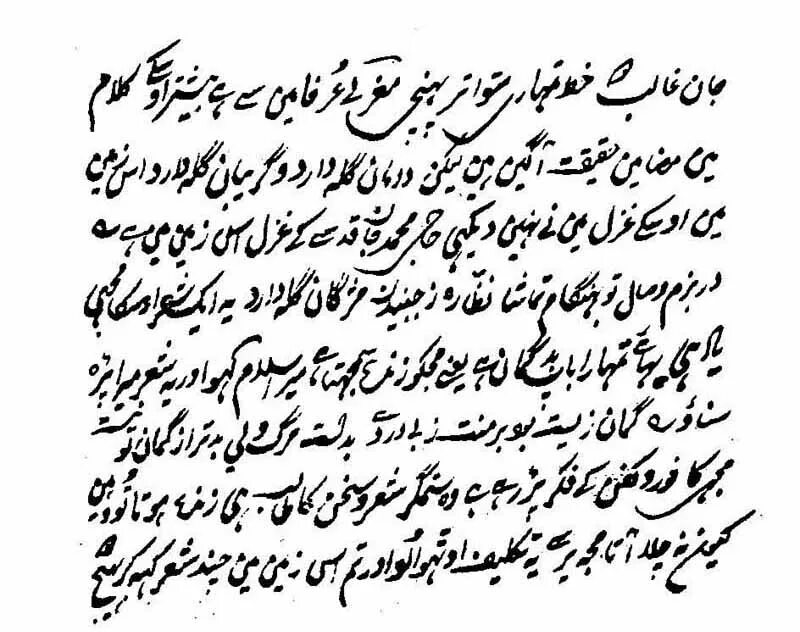 جان غالب خط تمہاری متواتر پہنچی مغربی عرفا مین سے ہے بیشتر اوسکے کلام
مین مضامین حقیقت آگین ہین لیکن درمان گلہ دارد و گریبان گلہ دارد اس زمین
مین اوسکے غزل مین نے نہین دیکھی حاجی محمد جان قدسے کے غزل اس زمین مین ہے ؎
در بزم وصال تو بہنگام تماشا نظارہ ز جنبیدن مژگان گلہ دارد یہ ایک شعر اوسکا مجھی
یاد ہی بہائی تمہارا باپ بدگمان ہے یعنے مجکو زندہ سمجھتا ہے میرا سلام کہو اور یہ شعر میرا پڑہ
سناؤ ؎ گمان زیست بود بر منت ز بیدردے بدست مرگ ولی بدتر از گمان تو نیست
مجھی کافور و کفن کے فکر پڑ رہے ہے وہ ستمگر شعر و سخن کا طالب ہی زندہ ہوتا تو وہین
کیون نہ چلا آتا مجھ پر سے یہ تکلیف اوٹھوالو اور تم اسی زمین مین چند شعر کہہ کر بھیج